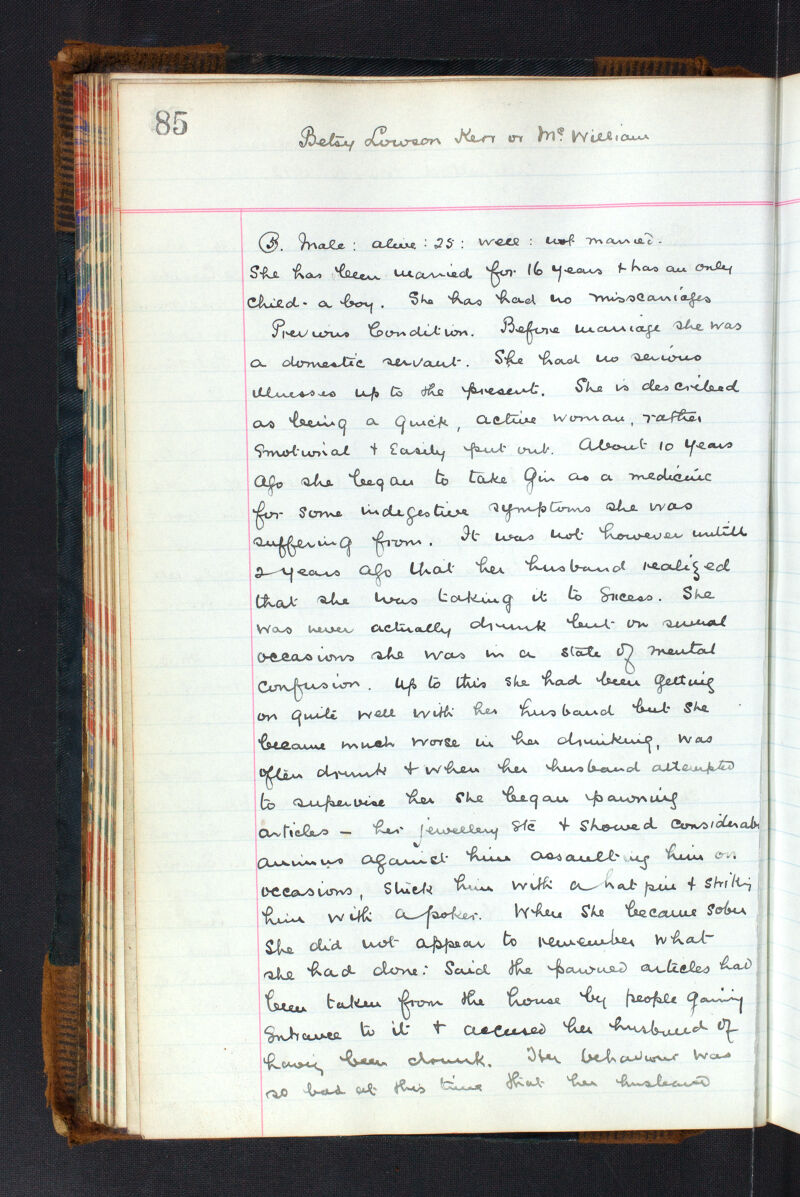 85
Betsy Lowson Kerr or Mc William
3. Male : alive : 25 : well : not married.
She has been married for 16 years & has an only
child - a boy. She has had no misscarriages
Previous Condition. Before marriage she was
a domestic servant. She had no serious
illnesses up to the present. She is described
as being a quick, active woman, rather
Emotional & Easily put out. About 10 years
ago she began to take Gin as a medicine
for some indigestive symptoms she was
suffering from. It was not however untill
2 years ago that her husband realized
that she was taking it to Excess. She
was never actually drunk but on several
occasions she was in a state of mental
confusion. Up to this she had been getting
on quite well with her husband but she
became much worse in her drinking, was
often drunk & when her husband attempted
to supervise her she began pawning
articles - her jewellery Etc & showed considerab
animus against him assaulting him on
occasions, stuck him with a hat pin & striking
him with a poker. When she became sober
she did not appear to remember what
she had done: Said the pawned articles had
been taken from the house by people gaining
Entrance to it & accused her husband of
having been drunk. Her behaviour was
so bad at this time that her husband